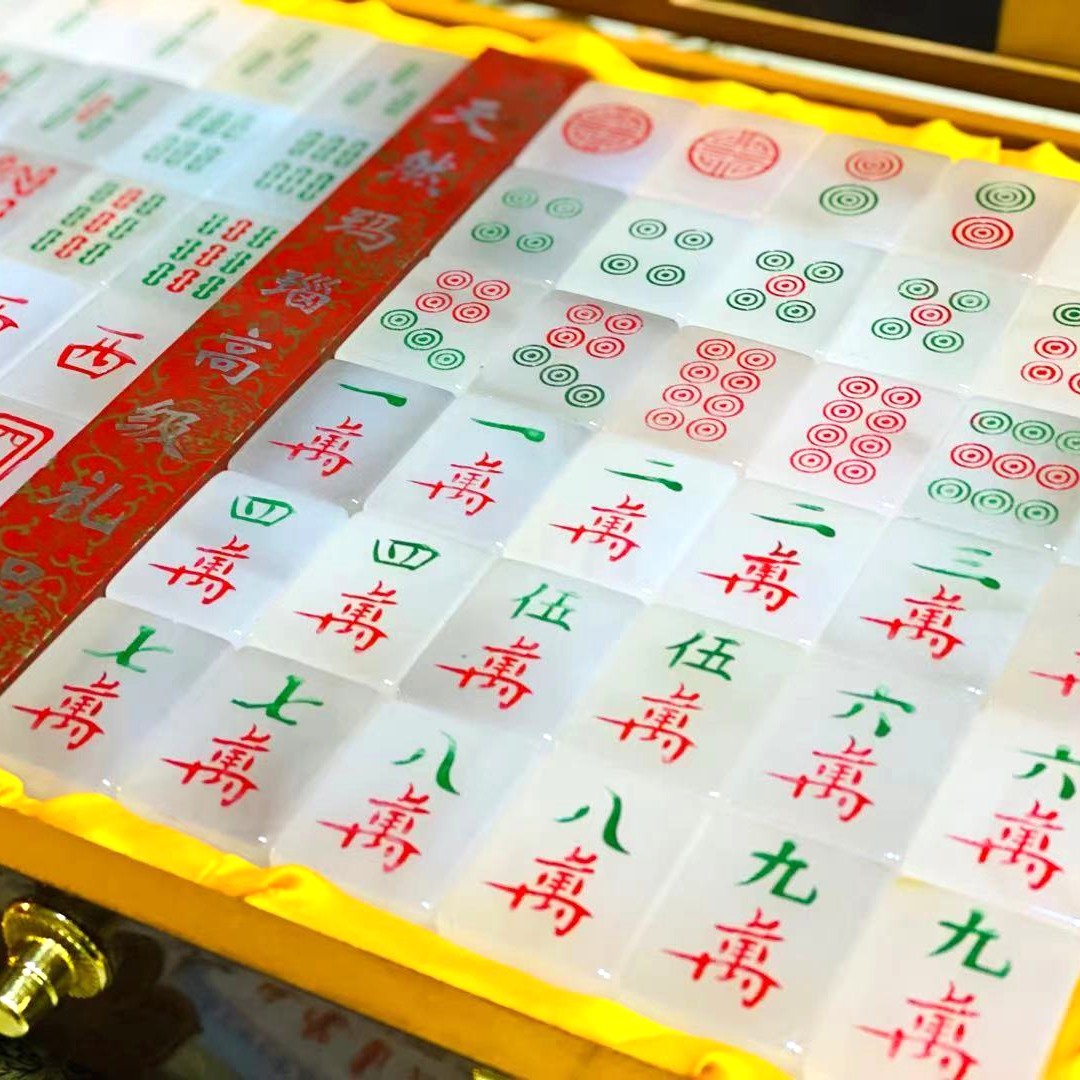 天然玛瑙高级礼品
西
一萬
一萬
二萬
二萬
三萬
四萬
四萬
伍萬
伍萬
六萬
六萬
七萬
七萬
八萬
八萬
九萬
九萬